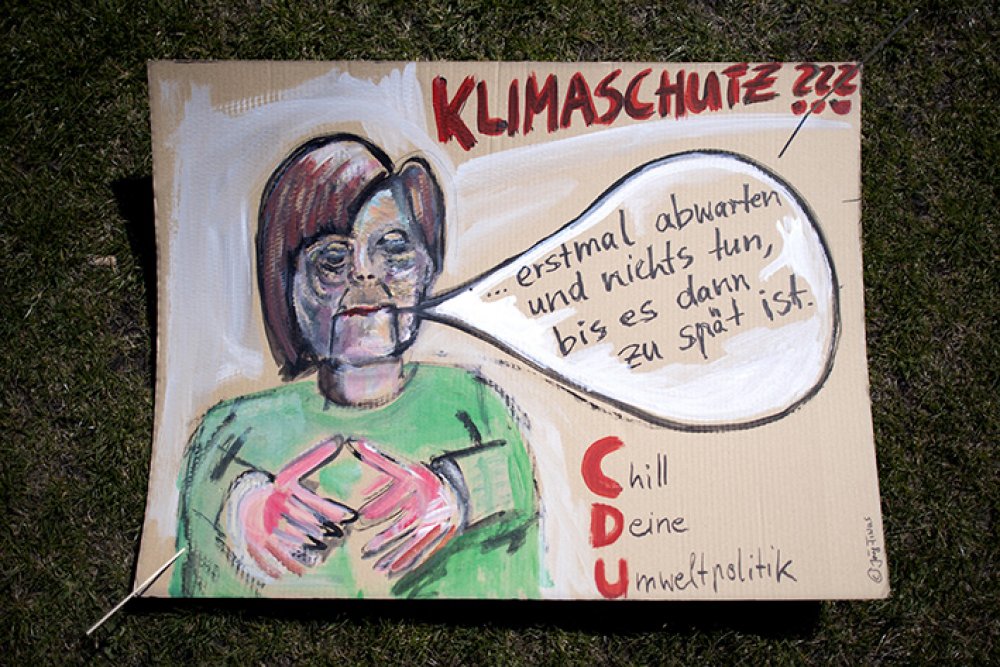 KLIMASCHUTZ ???
... erstmal abwarten
und nichts tun,
bis es dann
zu spät ist.
Chill
Deine
Umweltpolitik
©